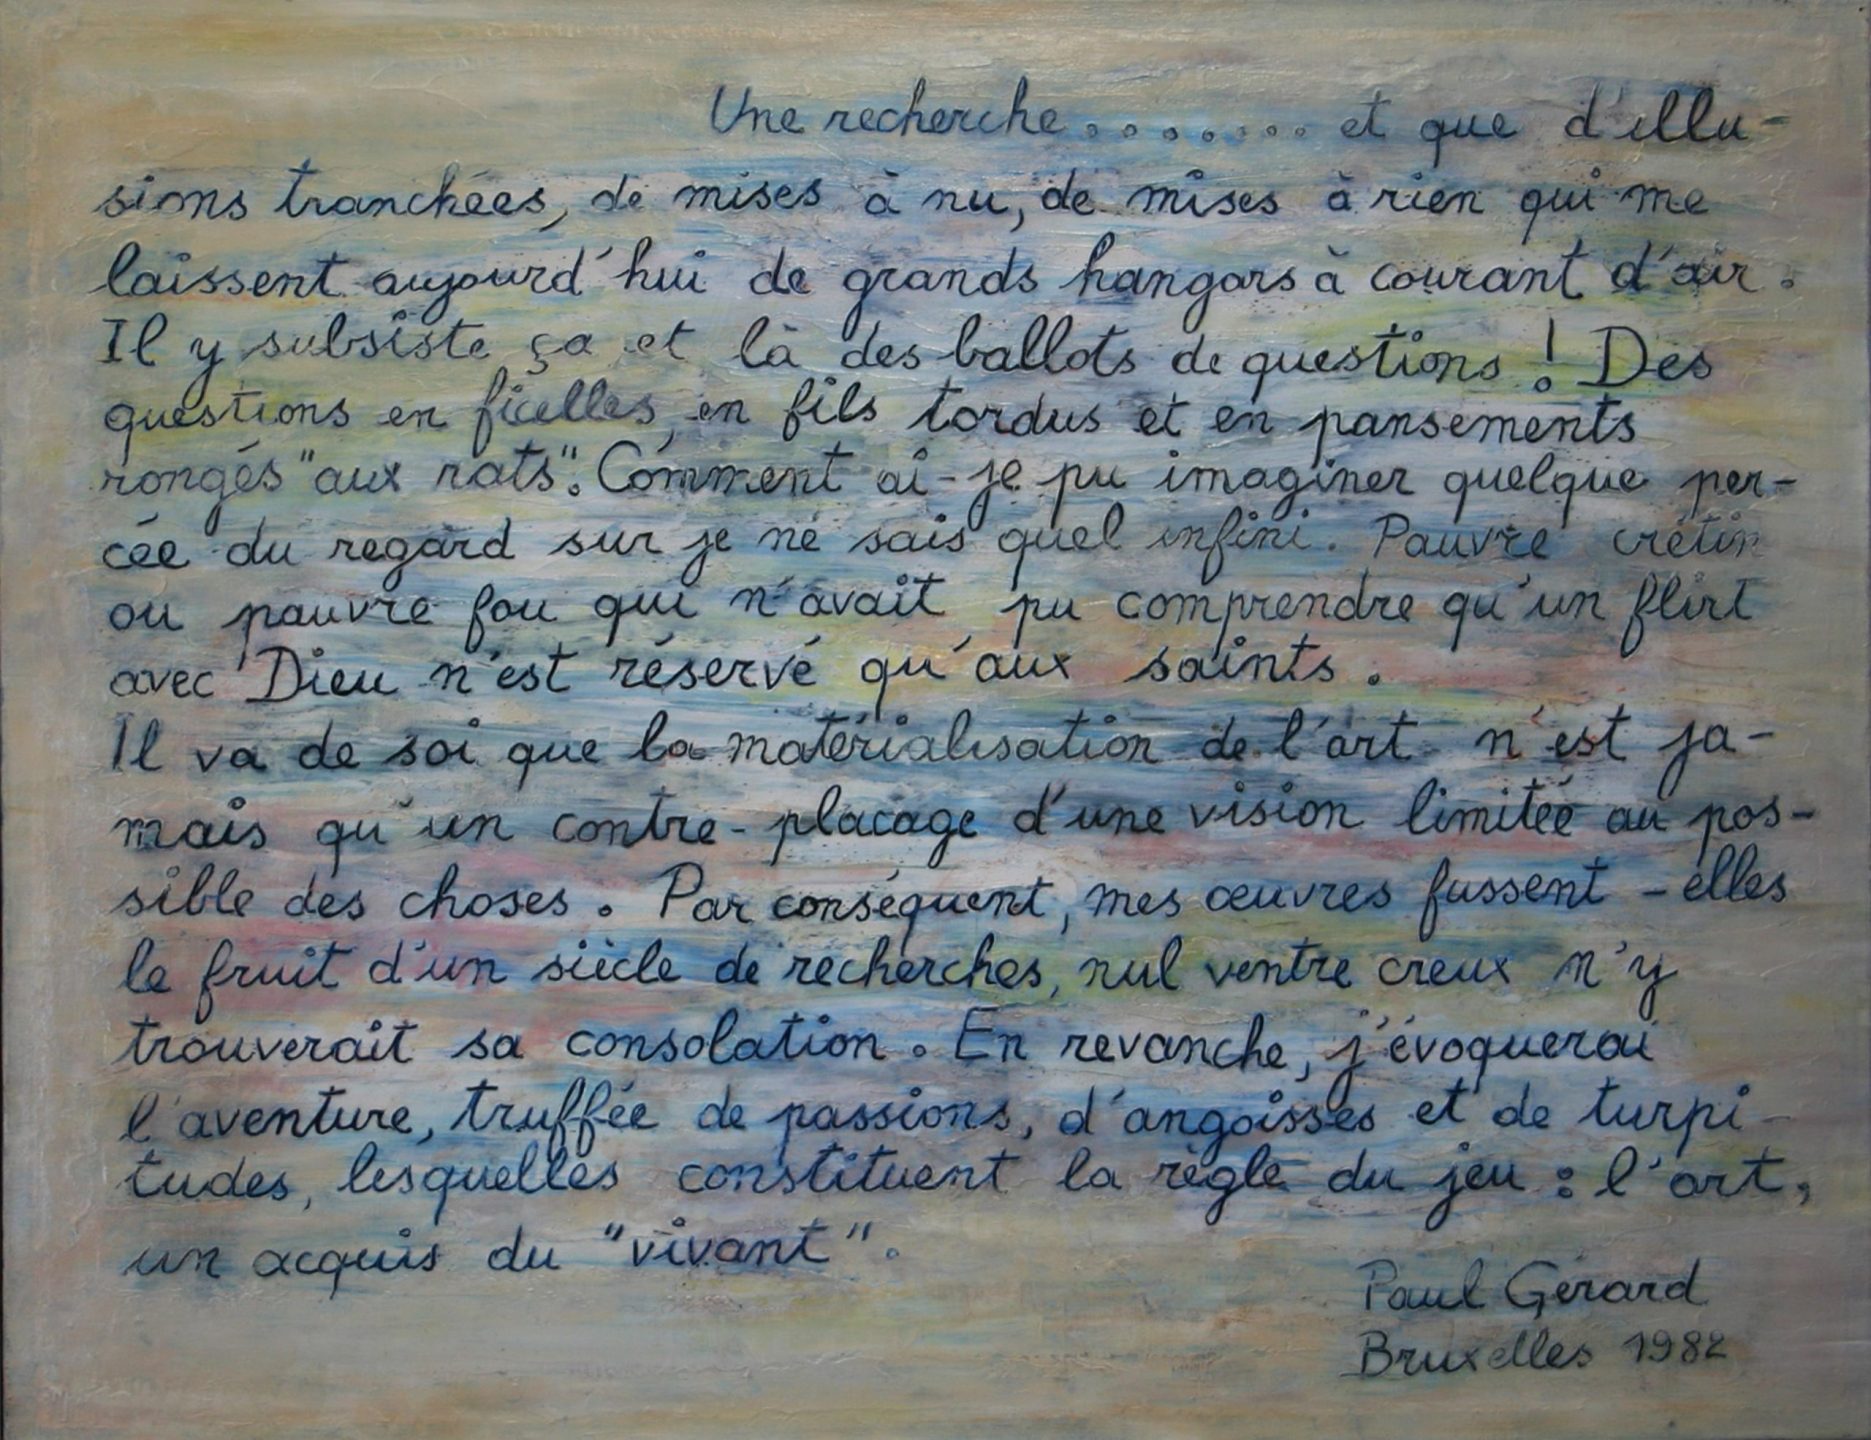 Une recherche........ et que d'illu-
sions tranchées, de mises à nu, de mises à rien qui me
laissent aujourd'hui de grands hangars à courant d'air.
Il y subsiste ça et là des ballots de questions ! Des
questions en ficelles, en fils tordus et en pansements
rongés "aux rats". Comment ai-je pu imaginer quelque per-
cée du regard sur je ne sais quel infini. Pauvre crétin
ou pauvre fou qui n'avait pu comprendre qu'un flirt
avec Dieu n'est réservé qu'aux saints.
Il va de soi que la matérialisation de l'art n'est ja-
mais qu'un contre-placage d'une vision limitée au pos-
sible des choses. Par conséquent, mes œuvres fussent-elles
le fruit d'un siècle de recherches, nul ventre creux n'y
trouverait sa consolation. En revanche, j'évoquerai
l'aventure, truffée de passions, d'angoisses et de turpi-
tudes, lesquelles constituent la règle du jeu : l'art,
un acquis du "vivant".
Paul Gérard
Bruxelles 1982